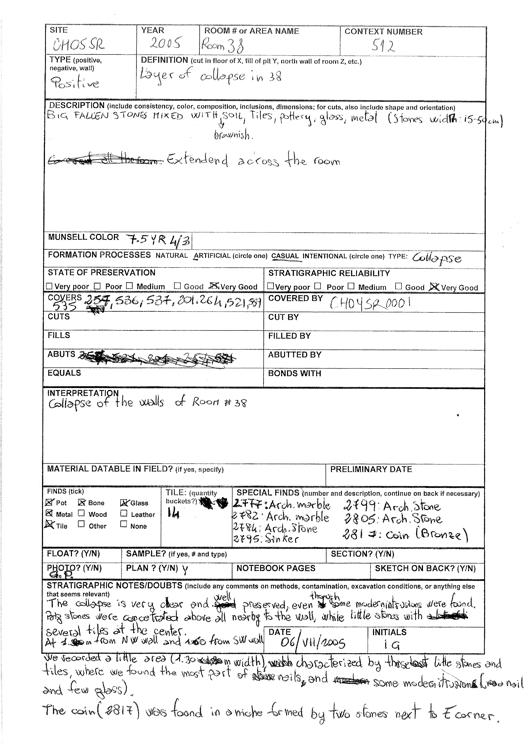 SITE YEAR ROOM # or AREA NAME CONTEXT NUMBER
CHO5SR 2005 Room 38 512
TYPE (positive, negative, wall) DEFINITION (cut in floor of X, fill of pit Y, north wall of room Z, etc.)
Positive Layer of collapse in 38
DESCRIPTION (include consistency, color, composition, inclusions, dimensions; for cuts, also include shape and orientation)
BIG FALLEN STONES MIXED WITH SOIL, Tiles, pottery, glass, metal (Stones width: 15-50cm)
brownish.
Extendend across the room
MUNSELL COLOR 7.5 YR 4/3
FORMATION PROCESSES NATURAL ARTIFICIAL (circle one) CASUAL INTENTIONAL (circle one) TYPE: Collapse
STATE OF PRESERVATION STRATIGRAPHIC RELIABILITY
☐ Very poor ☐ Poor ☐ Medium ☐ Good ☒ Very Good ☐ Very poor ☐ Poor ☐ Medium ☐ Good ☒ Very Good
COVERS 536, 537, 201, 264, 521, COVERED BY CHO4SR0001
535
CUTS CUT BY
FILLS FILLED BY
ABUTS ABUTTED BY
EQUALS BONDS WITH
INTERPRETATION
Collapse of the walls of Room # 38
MATERIAL DATABLE IN FIELD? (if yes, specify) PRELIMINARY DATE
FINDS (tick) TILE: (quantity buckets?) SPECIAL FINDS (number and description, continue on back if necessary)
☒ Pot ☒ Bone ☒ Glass 14 2777: Arch. marble 2799: Arch. Stone
☒ Metal ☐ Wood ☐ Leather 2782: Arch. marble 2805: Arch. Stone
☒ Tile ☐ Other ☐ None 2784: Arch. Stone 2817: Coin (Bronze)
2795: Sinker
FLOAT? (Y/N) SAMPLE? (if yes, # and type) SECTION? (Y/N)
PHOTO? (Y/N) PLAN? (Y/N) Y NOTEBOOK PAGES SKETCH ON BACK? (Y/N)
STRATIGRAPHIC NOTES/DOUBTS (Include any comments on methods, contamination, excavation conditions, or anything else that seems relevant)
The collapse is very clear and well preserved, even though some modern intrusions were found.
Big stones were above all nearby to the wall, while little stones with
several tiles at the center. DATE INITIALS
from NW wall and from SW wall 06/VII/2005 IG
We recorded a little area (1.30 width), characterized by little stones and
tiles, where we found the most part of nails, and some modern intrusions ( nail
and few glass).
The coin (2817) was found in a niche formed by two stones next to E corner.